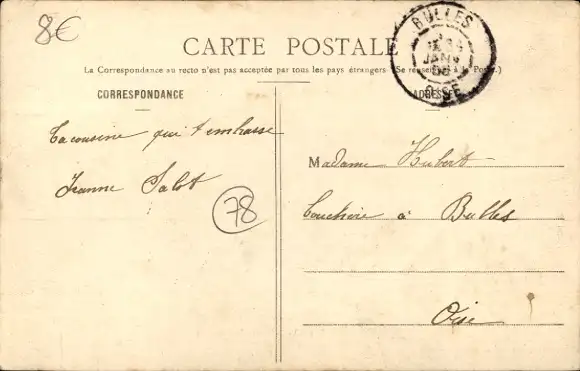 8€
BULLES
JANV
OISE
CARTE POSTALE
La Correspondance au recto n'est pas acceptée par tous les pays étrangers (Se renseigner à la Poste.)
CORRESPONDANCE
ADRESSE
Ta cousine qui t'embrasse
Jeanne Salot
78
Madame Hubert
Bouchère à Bulles
Oise